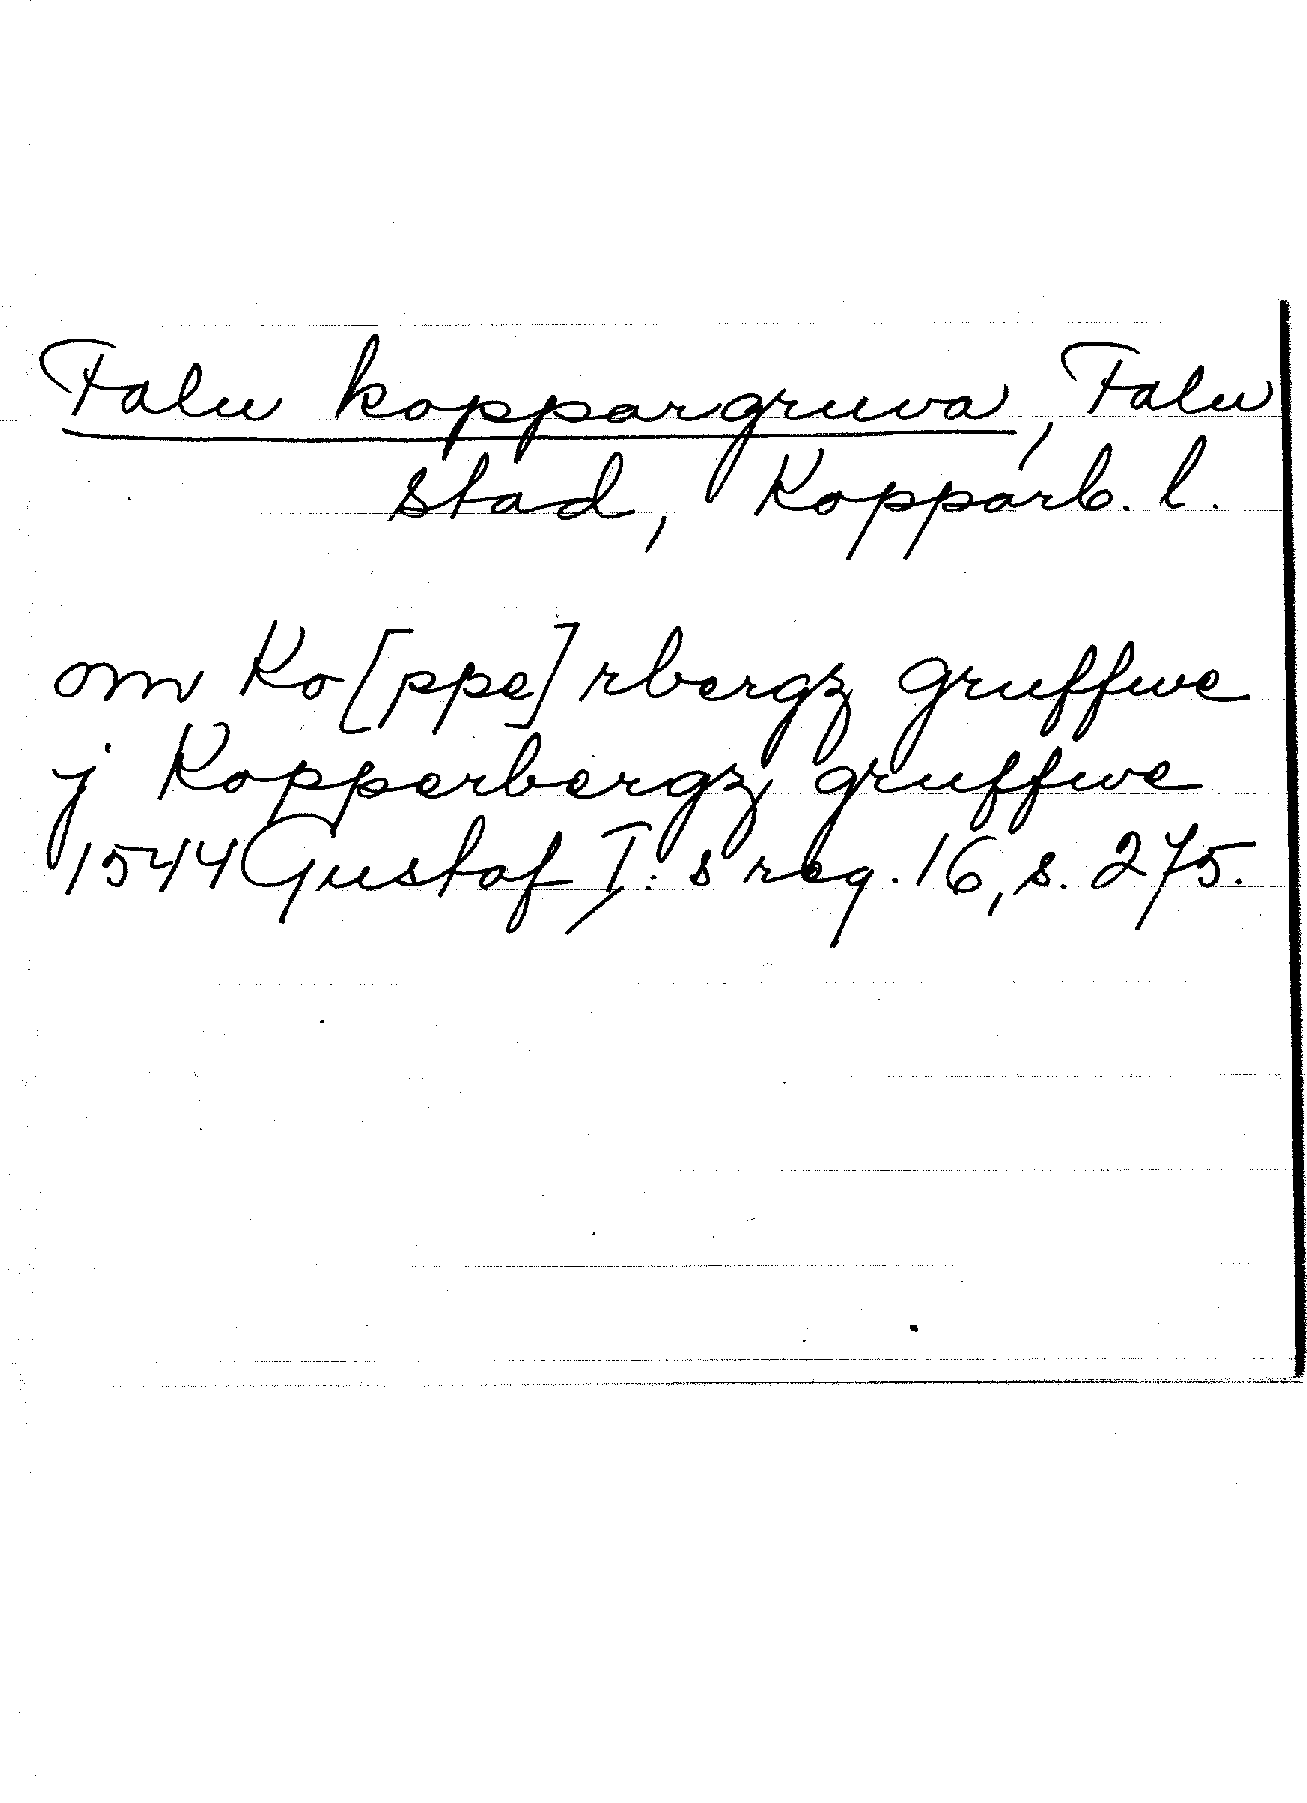 Falu koppargruva, Falu
stad, Kopparb. l.
om Ko[ppe]rbergz gruffwe
j Kopperbergz gruffwe
1544 Gustaf I:s reg. 16, s. 275.